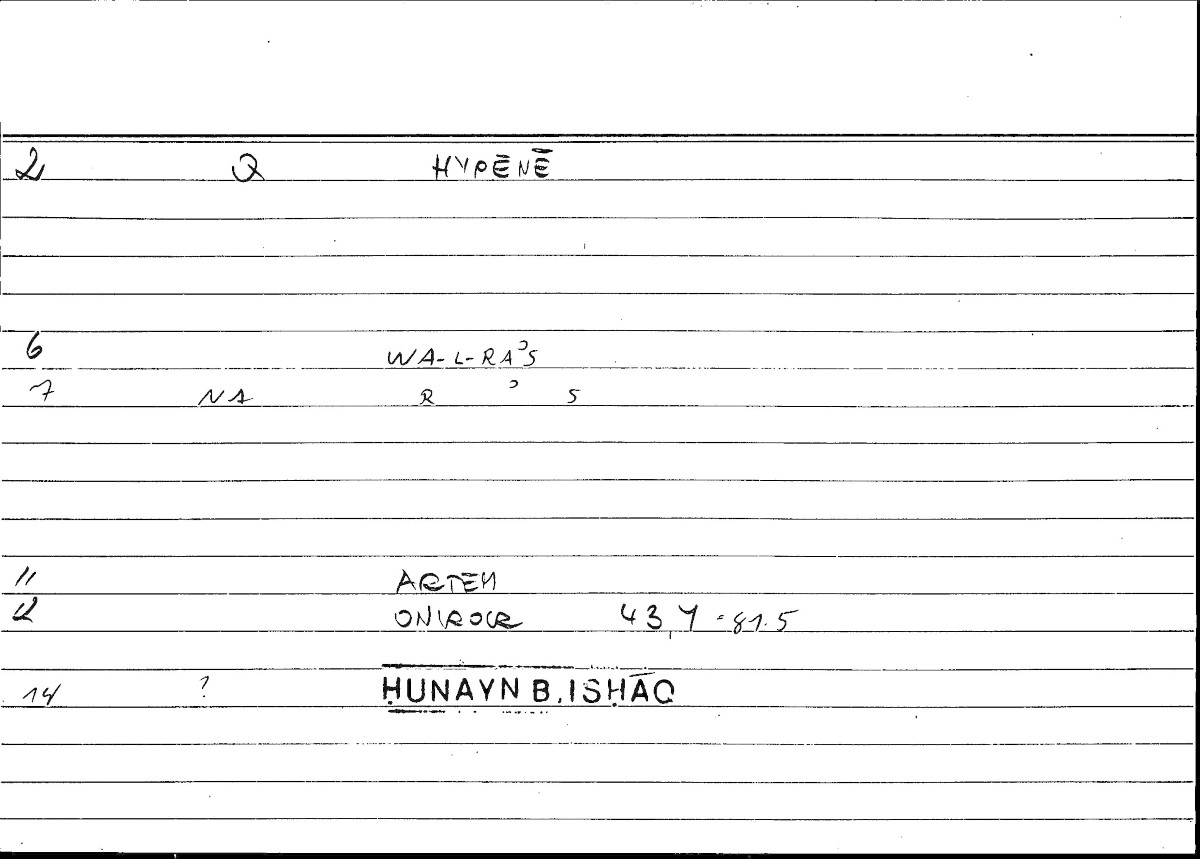 2 Q HYPĒNĒ
6 WA-L-RAʾS
7 NA R ʾ S
11 ARTEM
12 ONIROCR 43,4 = 81.5
14 ? ḤUNAYN B. ISḤĀQ